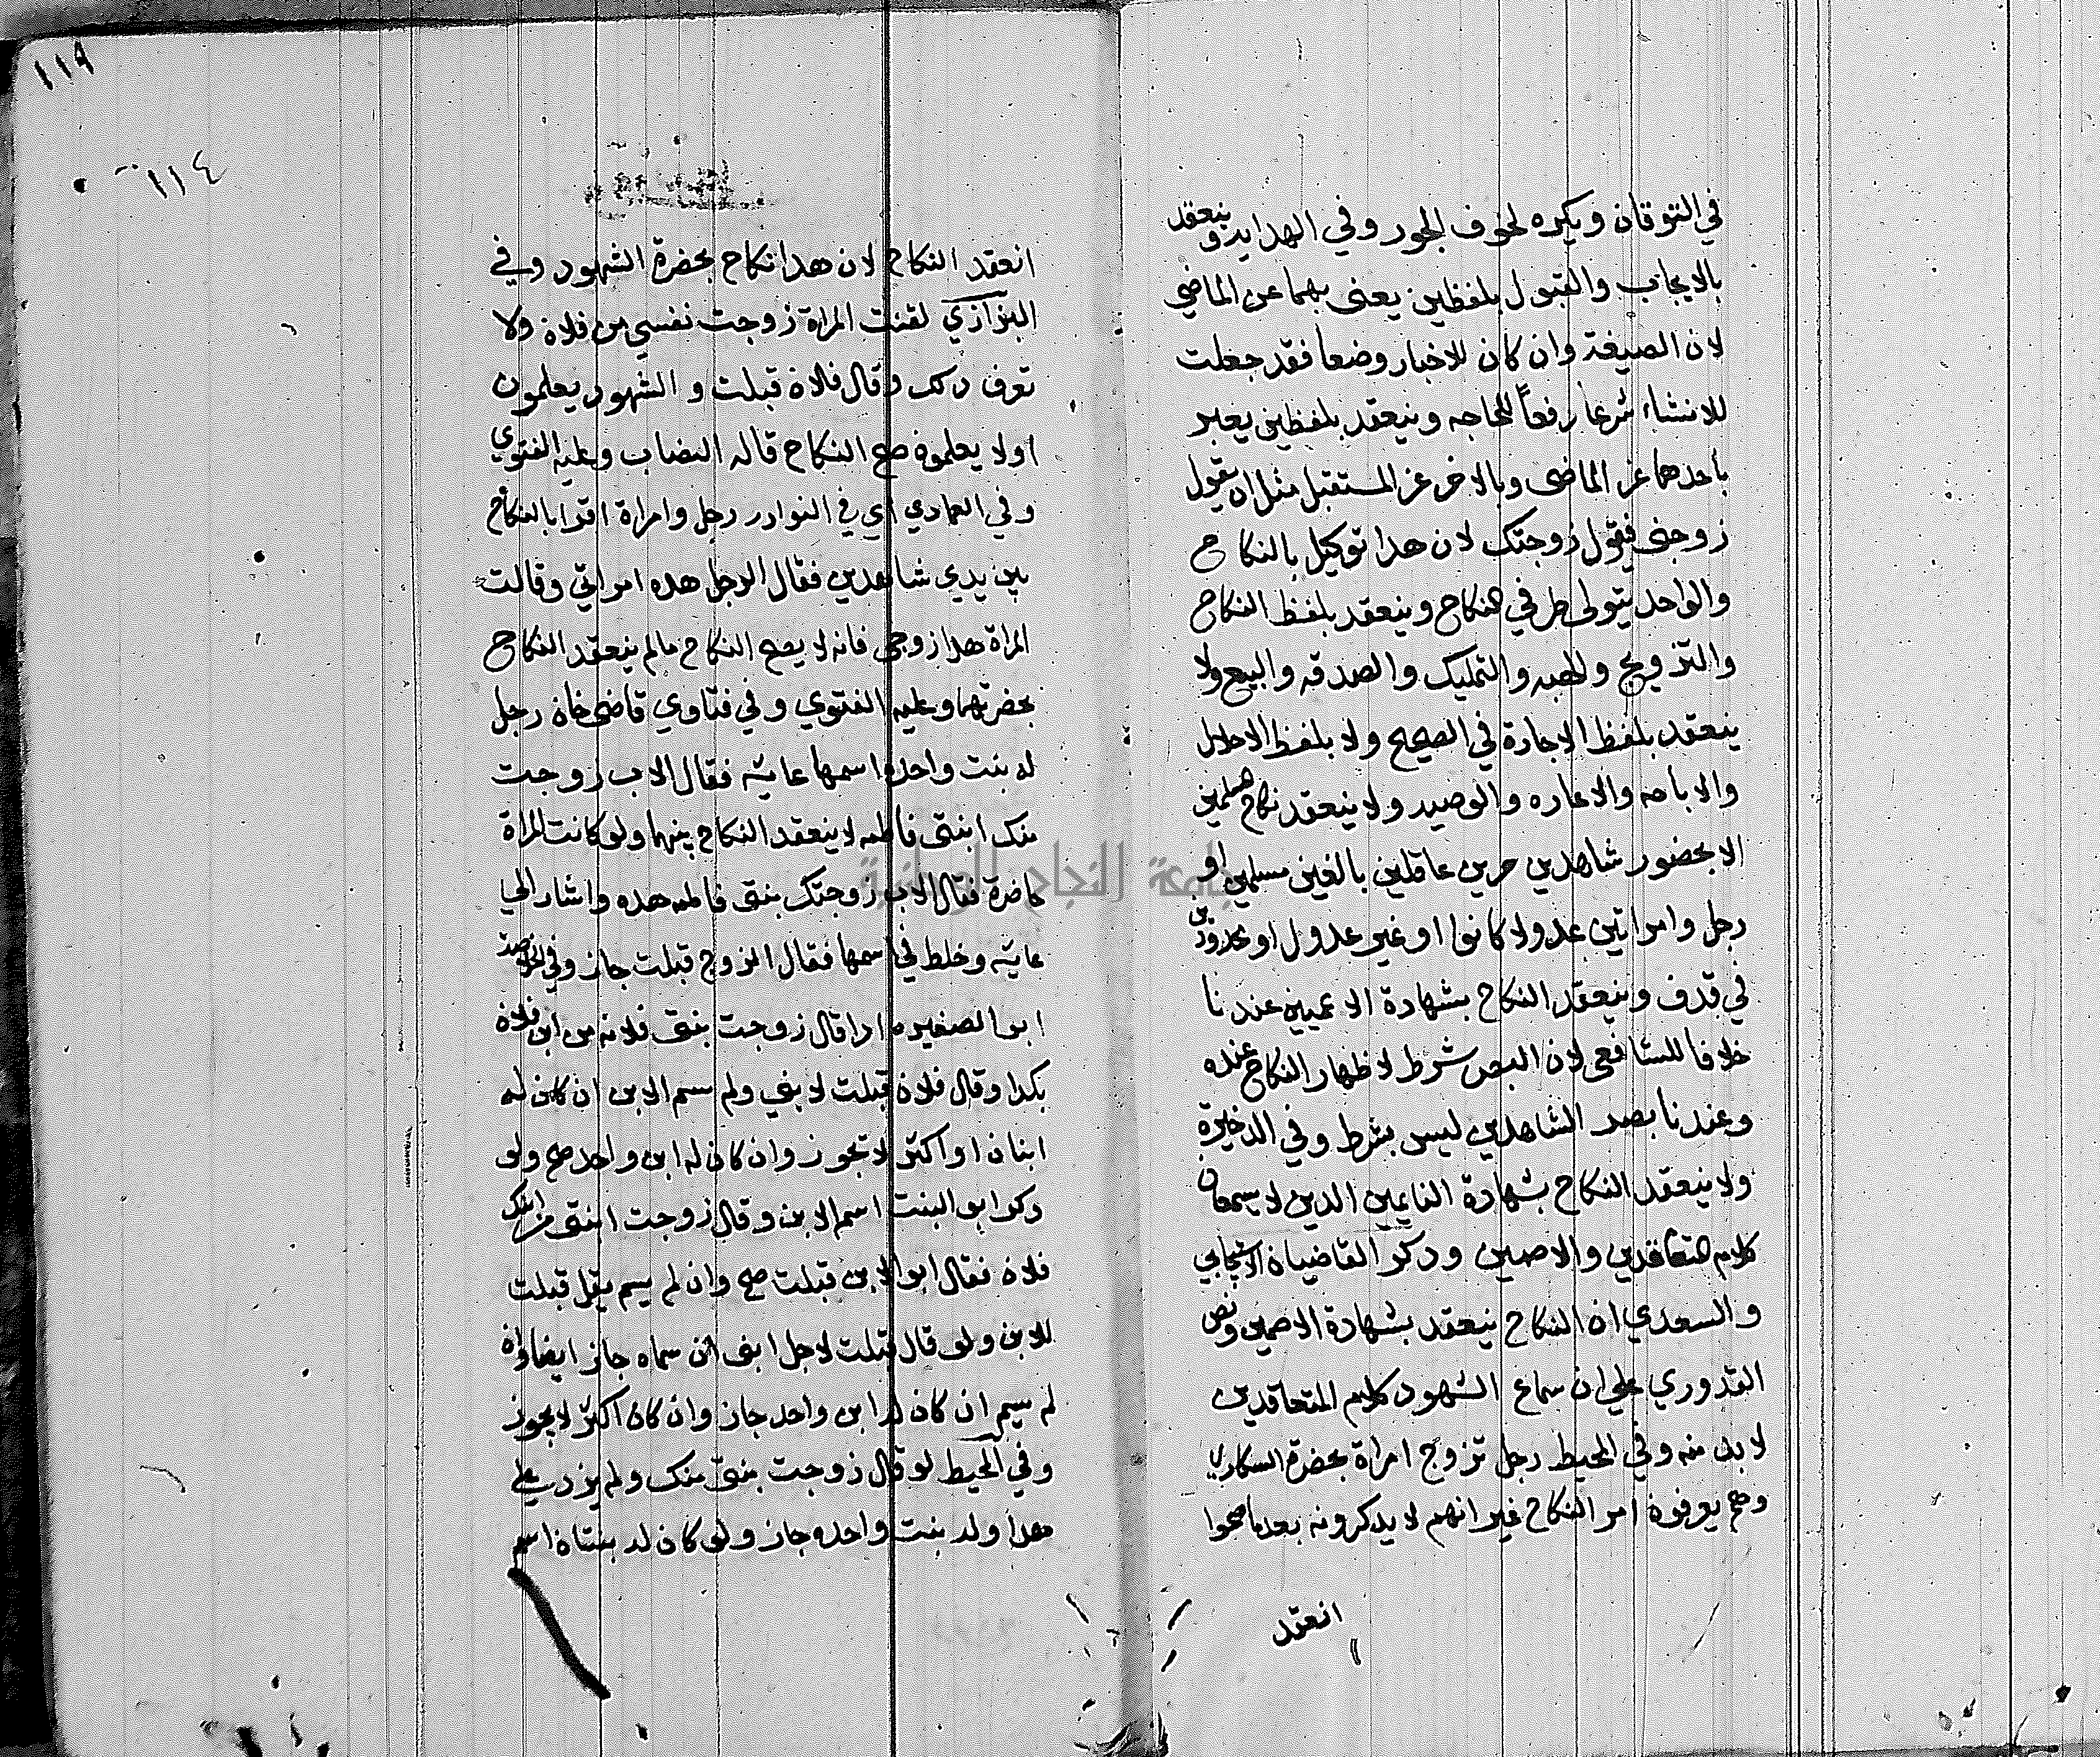 في التوقان ويكره لخوف الجور وفي الهدايه وينعقد
بالايجاب والقبول بلفظين يعنى بهما عن الماضي
لان الصيغة وان كان للاخبار وضعا فقد جعلت
للانشاء شرعا رفعاً للحاجه وينعقد بلفظين يعبر
باحدهما عن الماضى وبالاخر عن المستقبل مثل ان يقول
زوجنى فيقول زوجتك لان هدا توكيل بالنكاح
والواحد يتولى طرفي النكاح وينعقد بلفظ النكاح
والتزويج والهبه والتمليك والصدقه والبيع ولا
ينعقد بلفظ الاجارة في الصحيح ولا بلفظ الاحلال
والاباحه والاعاره والوصيه ولا ينعقد نكاح المسلمين
الا بحضور شاهدين حرين عاقلين بالغين مسلمين او
رجل وامراتين عدولا كانوا او غير عدول او محدودين
في قدف وينعقد النكاح بشهادة الاعميين عندنا
خلافا للشافعى لان البصر شرط لاظهار النكاح عنده
وعندنا بصر الشاهدين ليس بشرط وفي الدخيرة
ولا ينعقد النكاح بشهادة النايمين الدين لا يسمعان
كلام المتعاقدين والاصمين ودكر القاضيان الاسبيجابي
والسعدي ان النكاح ينعقد بشهادة الاصمين ونص
القدوري على ان سماع الشهود كلام المتعاقدين
لا بد منه وفي المحيط رجل تزوج امراة بحضرة السكاري
وهم يعرفون امر النكاح غير انهم لا يدكرونه بعدما صحوا
انعقد
١١٩
١١٤
انعقد النكاح لان هدا نكاح بحضرة الشهود وفي
البزازي لقنت المراة زوجت نفسي من فلان ولا
تعرف دلك وقال فلان قبلت والشهود يعلمون
اولا يعلمون صح النكاح قاله النصاب وعليه الفتوي
وفي العمادي اي في النوادر رجل وامراة اقرا بالنكاح
بين يدي شاهدين فقال الرجل هده امراتي وقالت
المراة هدا زوجى فانه لا يصح النكاح مالم ينعقد النكاح
بحضرتهما وعليه الفتوي وفي فتاوي قاضى خان رجل
له بنت واحده اسمها عايشه فقال الاب زوجت
منك ابنتى فاطمه لا ينعقد النكاح بينهما ولو كانت المراة
حاضرة فقال الاب زوجتك بنتى فاطمه هده واشار الي
عايشه وغلط في اسمها فقال الزوج قبلت جاز وفي
ابو الصغيره ادا قال زوجت بنتى فلانه من ابن فلان
بكدا وقال فلان قبلت لابني ولم يسم الابن ان كان له
ابنان او اكثر لا تجوز وان كان له ابن واحد صح ولو
دكر ابو البنت اسم الابن وقال زوجت ابنتى من ابنك
فلان فقال ابو الابن قبلت صح وان لم يسم يقل قبلت
للابن ولو قال قبلت لاجل ابنى ان سماه جاز ايضا وان
لم يسم ان كان له ابن واحد جاز وان كان اكثر لا يجوز
وفي المحيط لو قال زوجت بنتى منك ولم يزد علي
هدا وله بنت واحده جاز ولو كان له بنتان اسم
جامعة النجاح الوطنية